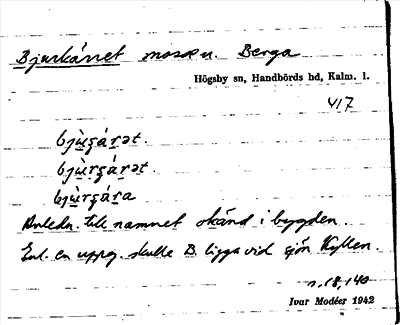 Bjurkärret mosse u. Berga
Högsby sn, Handbörds hd, Kalm. l.
417
bjùrgárət.
bjùrgárət.
bjùrgára
Anledn. till namnet okänd i bygden.
Enl. en uppg. skulle B. ligga vid sjön Kyllen.
s. 18, 140
Ivar Modéer 1942